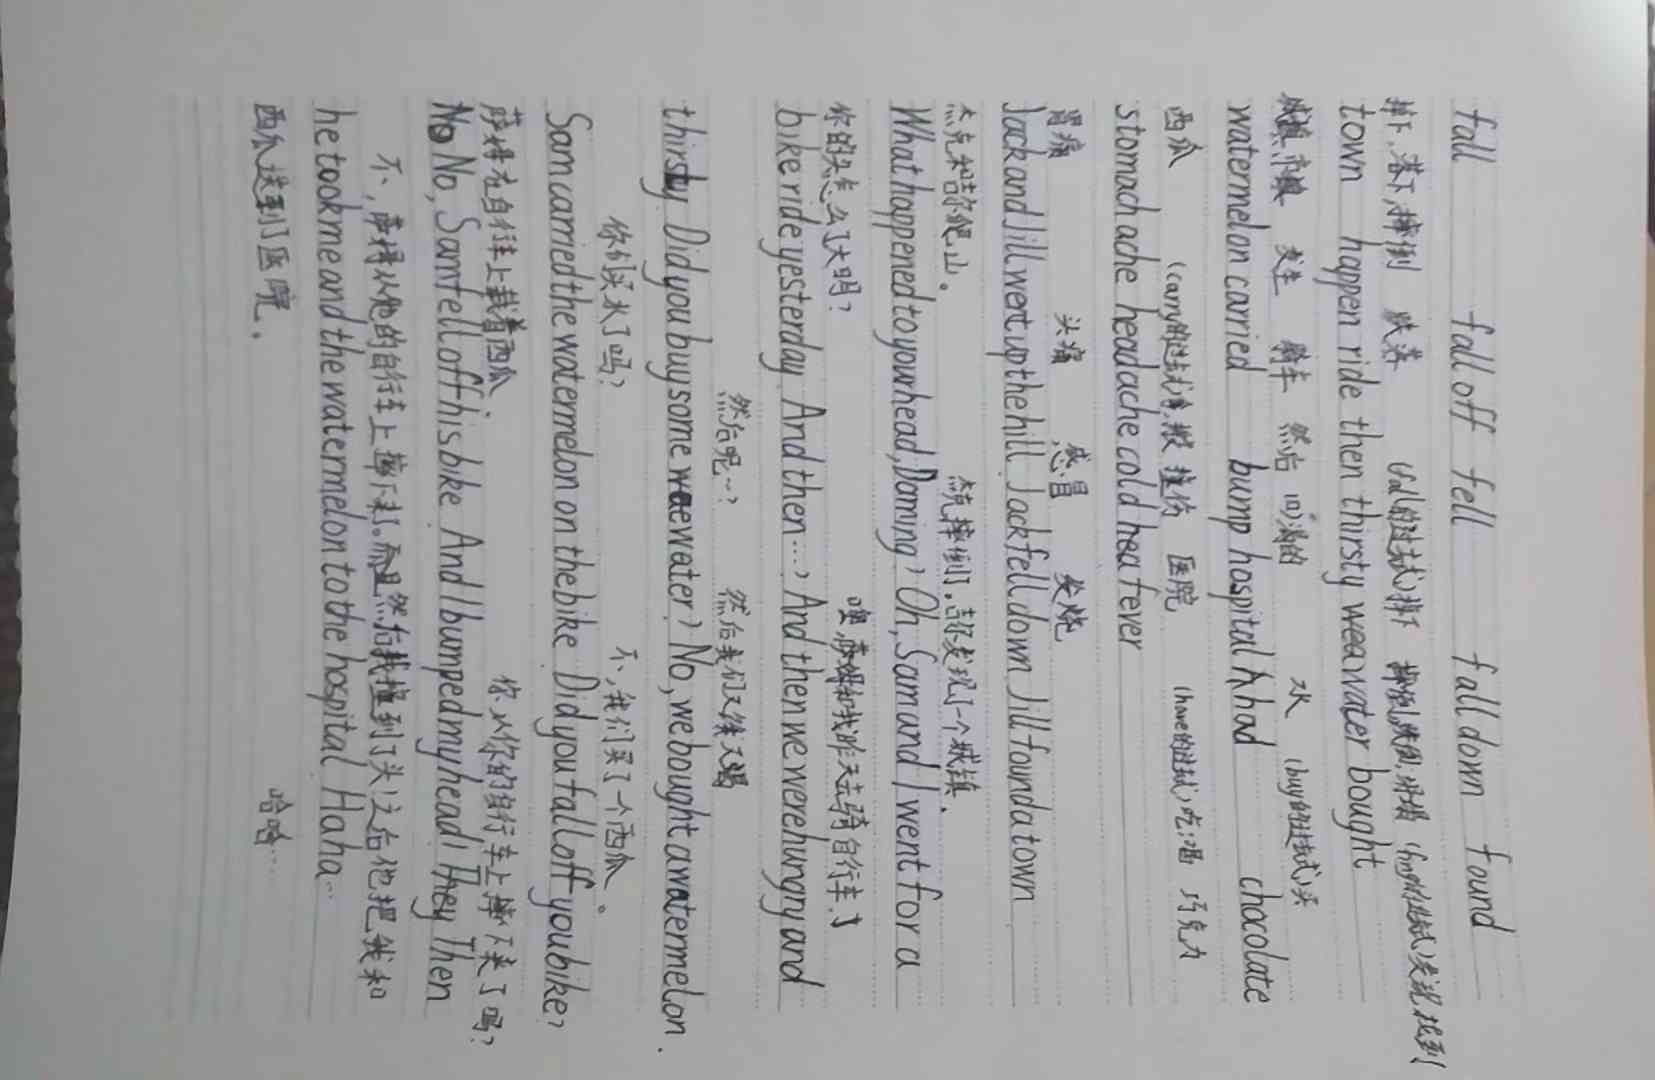 fall fall off fell fall down found
掉下,落下,摔倒 跌落 (fall的过去式)掉下 (find的过去式)发现,找到
town happen ride then thirsty water bought
城镇 发生 骑车 然后 口渴的 水 (buy的过去式)买
watermelon carried bump hospital had chocolate
西瓜 (carry的过去式)拿,搬 撞伤 医院 (have的过去式)吃;喝 巧克力
stomachache headache cold fever
胃痛 头痛 感冒 发烧
Jack and Jill went up the hill Jack fell down Jill found a town
杰克和吉尔爬山。 杰克摔倒了。吉尔发现了一个城镇.
What happened to your head, Daming? Oh, Sam and I went for a
你的头怎么了大明? 噢,萨姆和我昨天去骑自行车了
bike ride yesterday And then…? And then we were hungry and
然后呢…? 然后我们又饿又渴
thirsty. Did you buy some water? No, we bought a watermelon.
你们买水了吗? 不,我们买了一个西瓜。
Sam carried the watermelon on the bike Did you fall off you bike?
萨姆在自行车上载着西瓜. 你从你的自行车上摔下来了吗?
No, Sam fell off his bike And I bumped my head! Then
不,萨姆从他的自行车上摔下来了。然后我撞到了头!之后他把我和
he took me and the watermelon to the hospital Haha…
西瓜送到了医院. 哈哈…